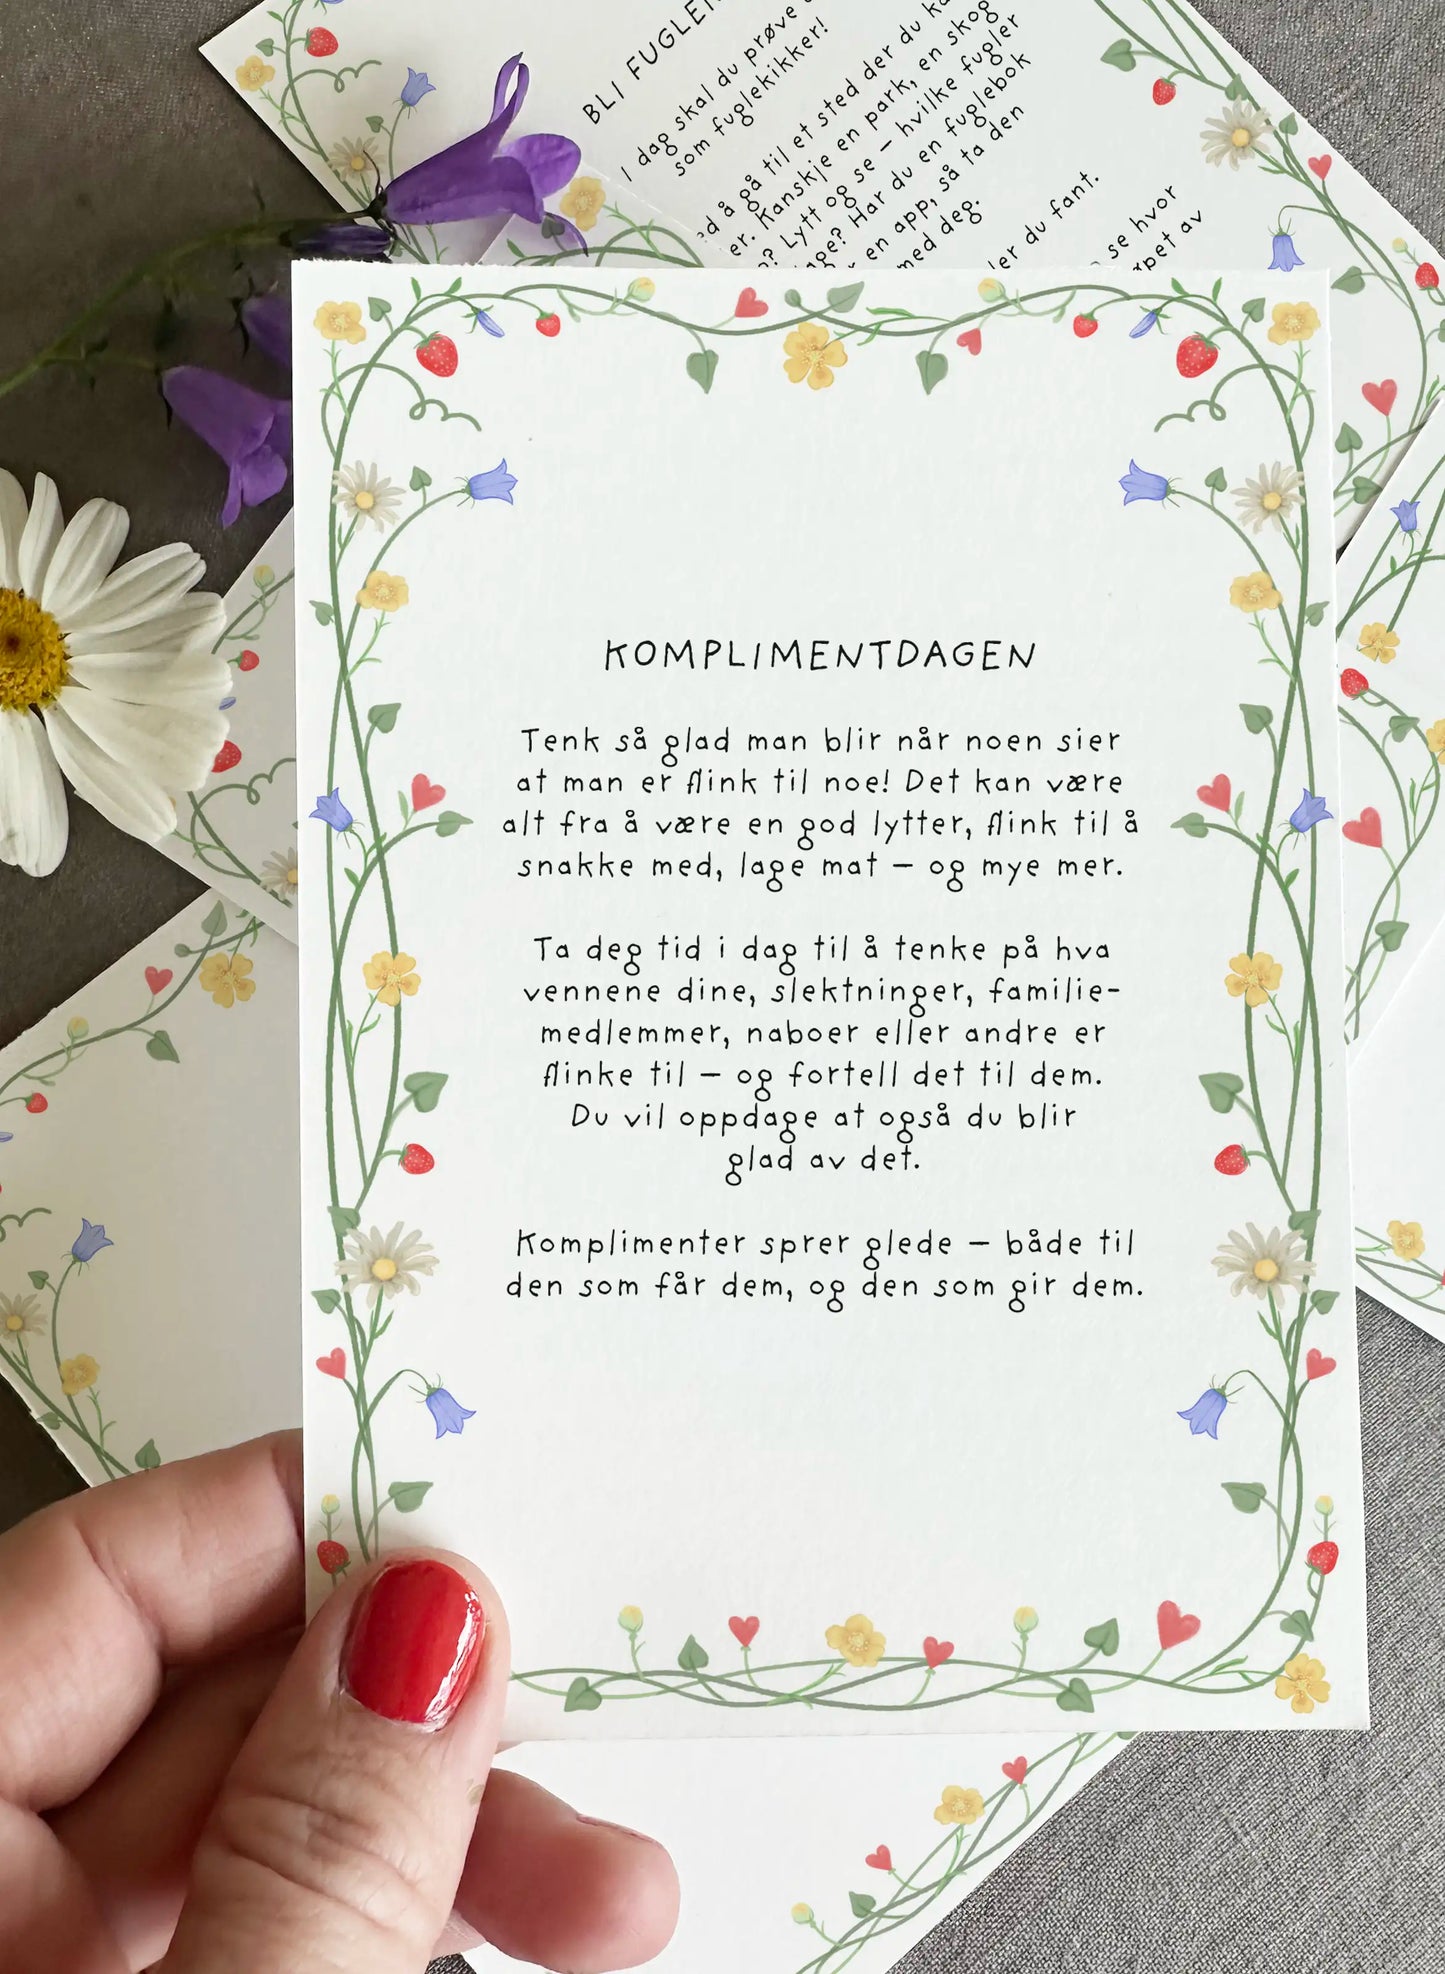 BLI
I dag skal du prøve
som fuglekikker!
å gå til et sted der du
Kanskje en park, en skog
Lytt og se – hvilke fugler
Har du en fuglebok
en app, så ta den
med deg.
du fant.
se hvor
av
KOMPLIMENTDAGEN
Tenk så glad man blir når noen sier
at man er flink til noe! Det kan være
alt fra å være en god lytter, flink til å
snakke med, lage mat – og mye mer.
Ta deg tid i dag til å tenke på hva
vennene dine, slektninger, familie-
medlemmer, naboer eller andre er
flinke til – og fortell det til dem.
Du vil oppdage at også du blir
glad av det.
Komplimenter sprer glede – både til
den som får dem, og den som gir dem.